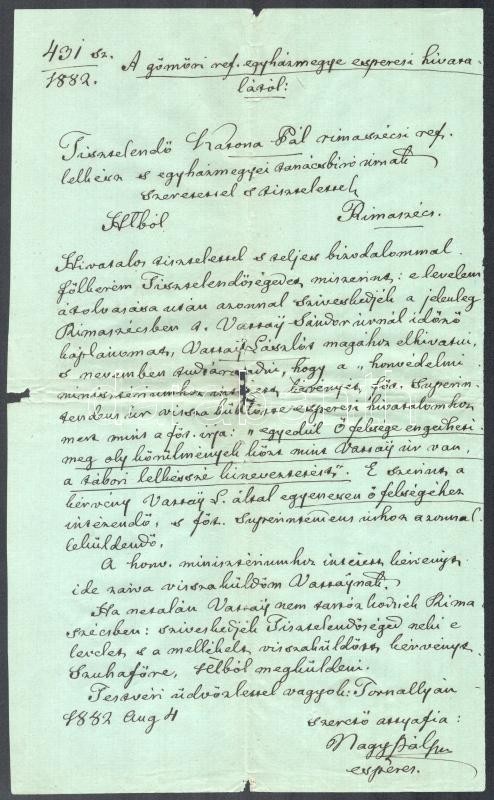 431 sz.
1882.
A gömöri ref. egyházmegye esperesi hivata-
lától:
Tisztelendő Katona Pál rimaszécsi ref.
lelkész s egyházmegyei tanácsbíró úrnak
szeretettel s tisztelettel
Htból Rimaszécs.
Hivatalos tisztelettel s teljes bizodalommal
fölkérem Tisztelendőségedet miszerint: e levelem
átolvasása után azonnal sziveskedjék a jelenleg
Rimaszécsben t. Vattaÿ Sándor úrnál időző
káplánomat, Vattaÿ Lászlót magához elhivatni,
s nevemben tudtára adni, hogy a „honvédelmi
ministeriumhoz intézett kérvényét főt. Superin-
tendens úr visszaküldötte esperesi hivatalomhoz
mert mint a főt. irja: „egyedül Ő felsége engedheti
meg oly körülmények közt mint Vattaÿ úr van,
a tábori lelkésszé kineveztetést". E szerint a
kérvény Vattaÿ L. által egyenesen ő felségéhez
intézendő, s főt. Superintendens úrhoz azonnal
leküldendő.
A honv. ministériumhoz intézett kérvényt
ide zárva visszaküldöm Vattaÿnak.
Ha netalán Vattaÿ nem tartózkodnék Rima-
szécsben: sziveskedjék Tisztelendőséged neki e
levelet s a mellékelt visszaküldött kérvényt
Szuhafőre, htból megküldeni.
Testvéri üdvözlettel vagyok: Tornallyán
1882 Aug 4 szerető attyafia:
Nagy Pál
esperes.